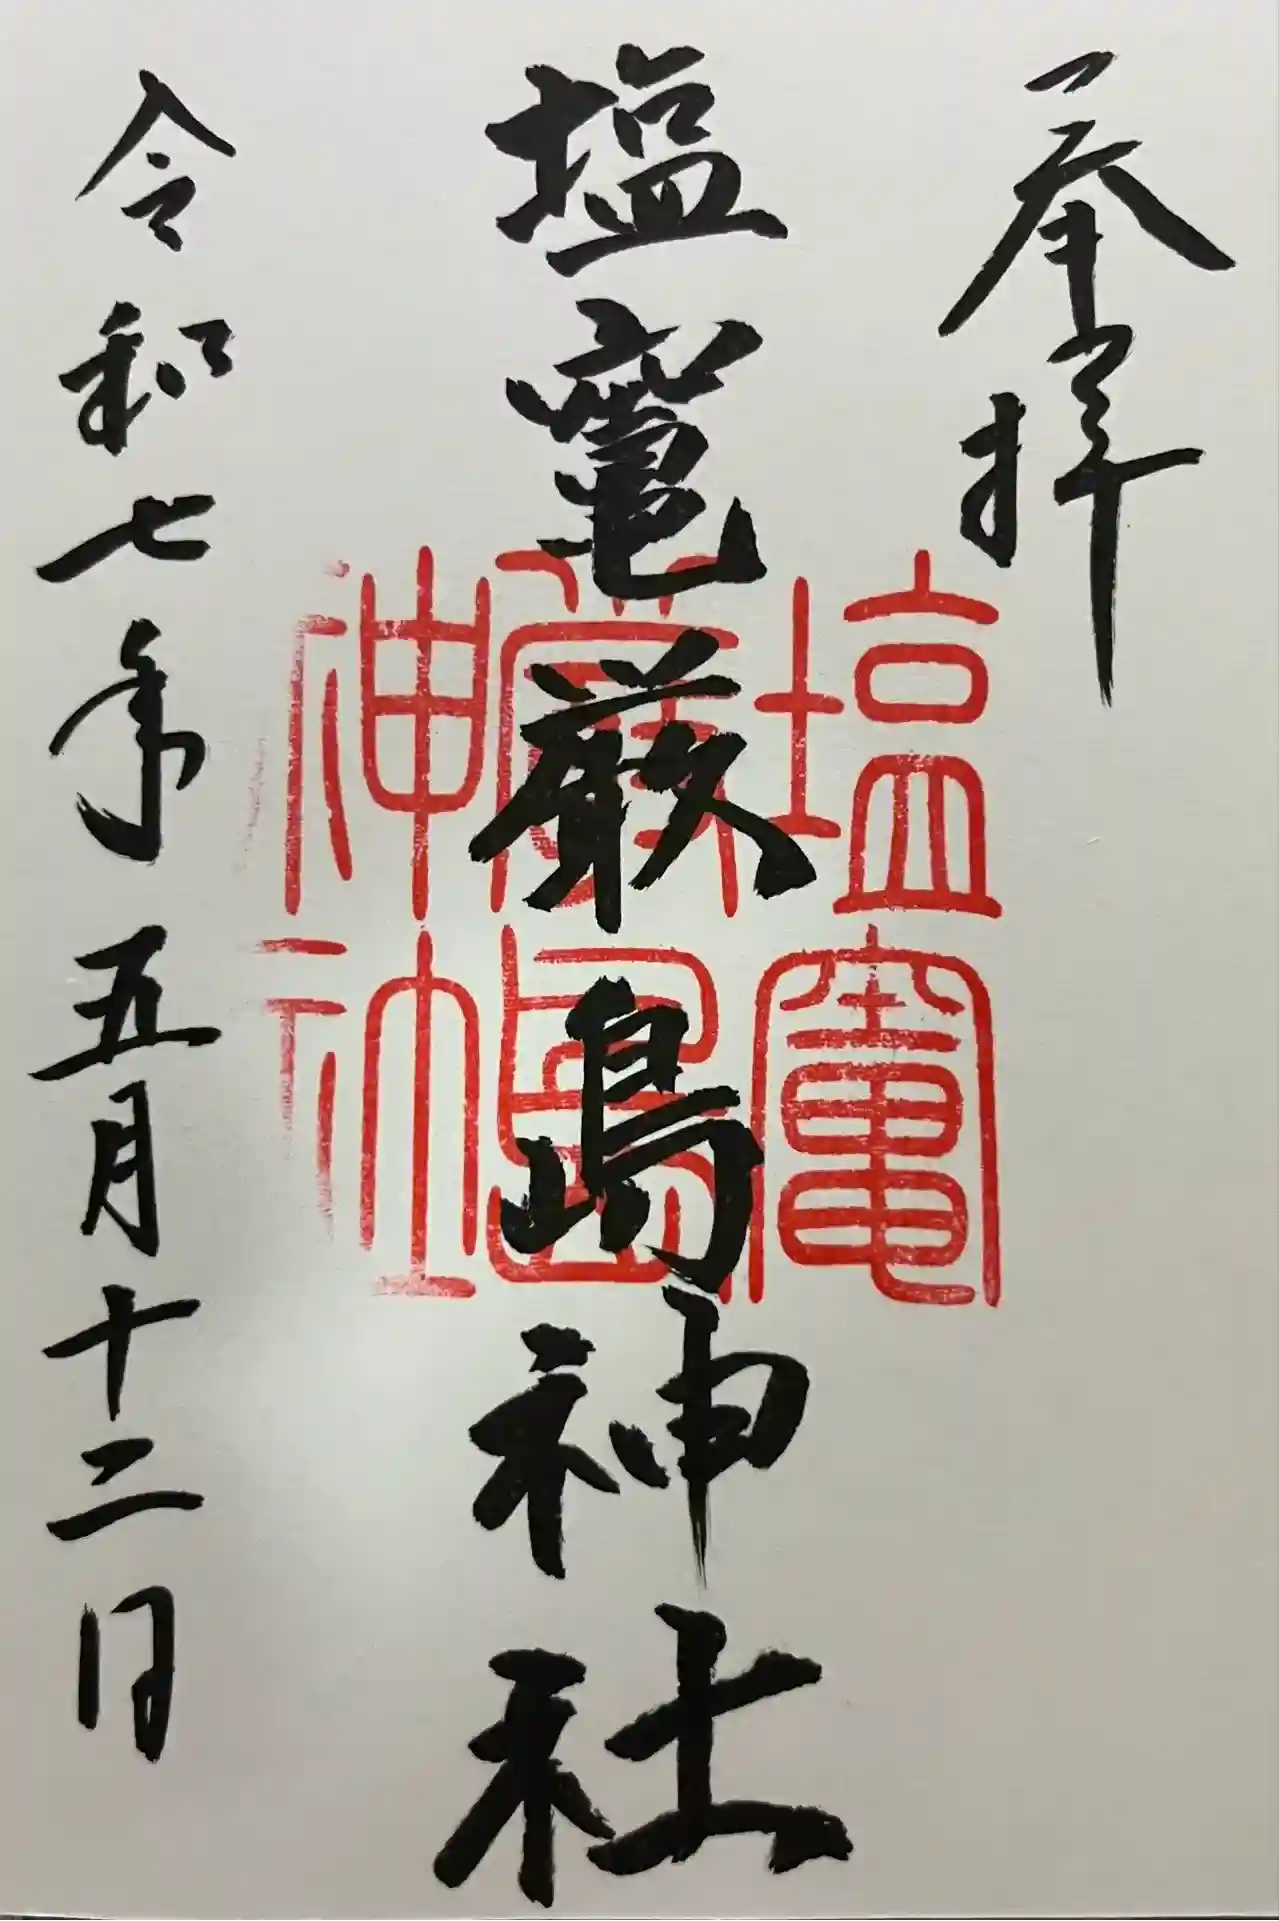 奉拝
塩竈厳島神社
塩竈
厳島
神社
令和七年五月十二日